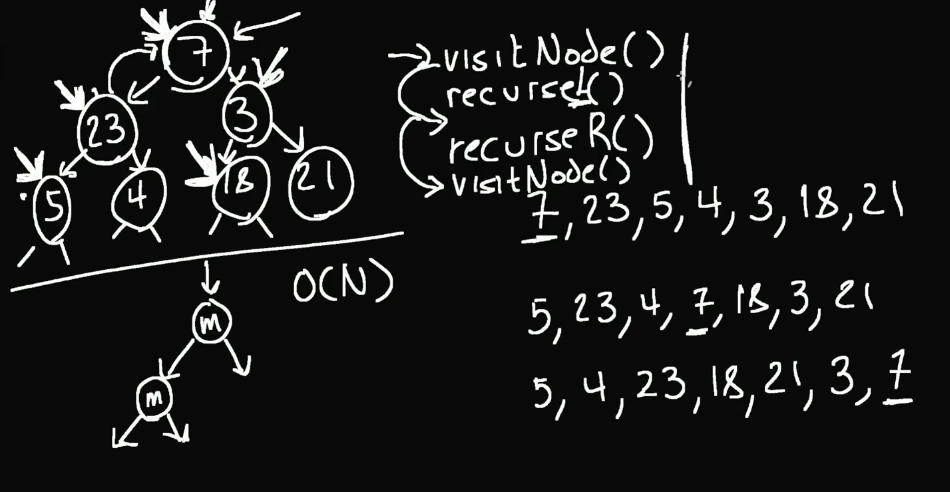 7
23
3
5
4
18
21
visitNode()
recurseL()
recurseR()
visitNode()
7, 23, 5, 4, 3, 18, 21
O(N)
5, 23, 4, 7, 18, 3, 21
m
m
5, 4, 23, 18, 21, 3, 7